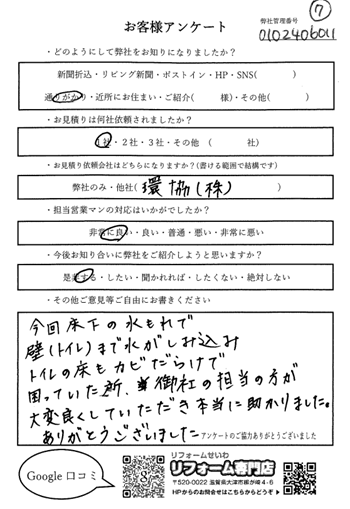 ⑦
お客様アンケート
弊社管理番号
0102406011
・どのようにして弊社をお知りになりましたか?
新聞折込・リビング新聞・ポストイン・HP・SNS( )
通りがかり・近所にお住まい・ご紹介( 様)・その他( )
・お見積りは何社依頼されましたか?
1社・2社・3社・その他 ( 社)
・お見積り依頼会社はどちらになりますか?(書ける範囲で結構です)
弊社のみ・他社( 環協(株) )
・担当営業マンの対応はいかがでしたか?
非常に良い・良い・普通・悪い・非常に悪い
・今後お知り合いに弊社をご紹介しようと思いますか?
是非する・したい・聞かれれば・したくない・絶対しない
・その他ご意見等ご自由にお書きください
今回床下の水もれで
壁(トイレ)まで水がしみ込み
トイレの床もカビだらけで
困っていた所、御社の担当の方が
大変良くしていただき本当に助かりました。
ありがとうございました
アンケートのご協力ありがとうございました
Google 口コミ
リフォームせいわ
リフォーム専門店
〒520-0022 滋賀県大津市柳が崎4-6
HPからのお問合せはこちらからどうぞ